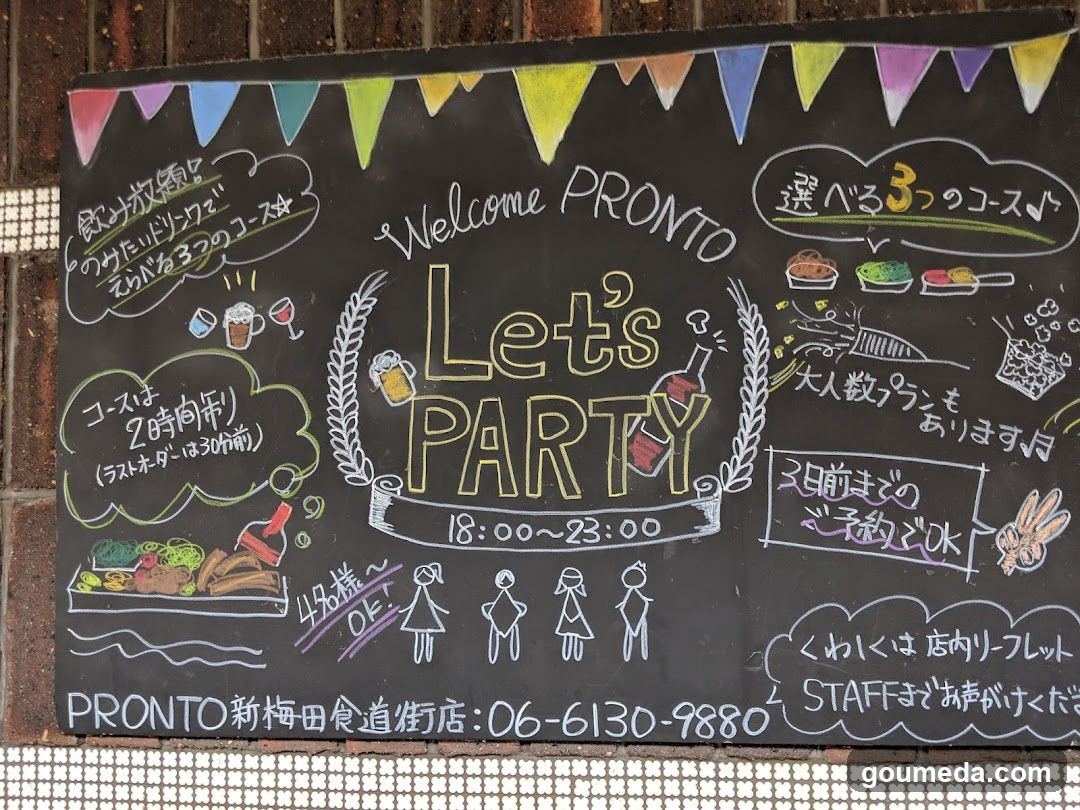 Welcome PRONTO
Let's
PARTY
18:00〜23:00
飲み放題!!
のみたいドリンクで
えらべる3つのコース☆
コースは
2時間制
(ラストオーダーは30分前)
選べる3つのコース♪
大人数プランも
あります♫
3日前までの
ご予約でOK
4名様〜
OK!
くわしくは店内リーフレット
STAFFまでお声がけくださ
PRONTO新梅田食道街店:06-6130-9880
goumeda.com